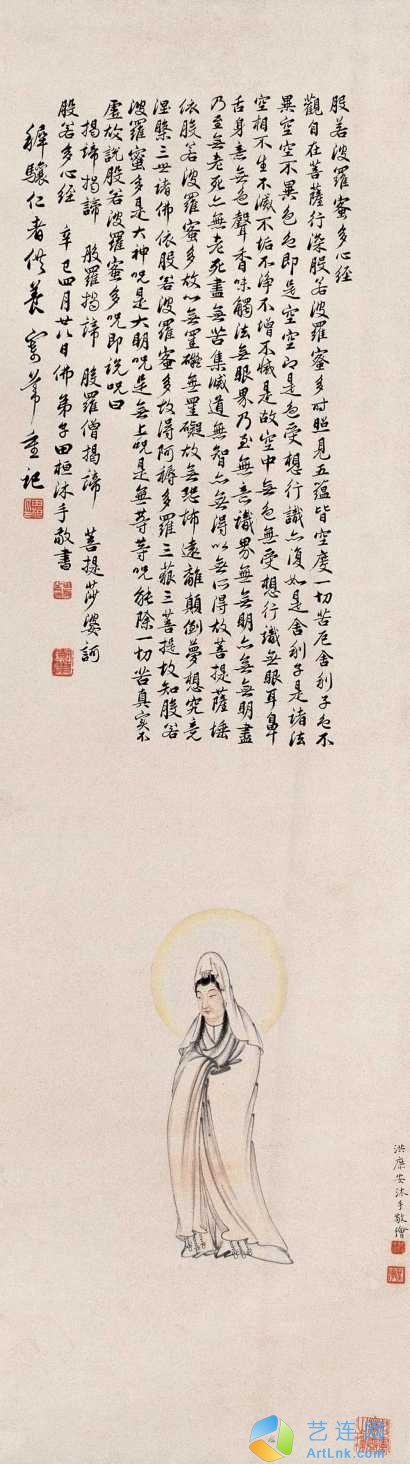 般若波羅蜜多心經
觀自在菩薩行深般若波羅蜜多時照見五蘊皆空度一切苦厄舍利子色不
異空空不異色色即是空空即是色受想行識亦復如是舍利子是諸法
空相不生不滅不垢不淨不增不減是故空中無色無受想行識無眼耳鼻
舌身意無色聲香味觸法無眼界乃至無意識界無無明亦無無明盡
乃至無老死亦無老死盡無苦集滅道無智亦無得以無所得故菩提薩埵
依般若波羅蜜多故心無罣礙無罣礙故無恐怖遠離顛倒夢想究竟
涅槃三世諸佛依般若波羅蜜多故得阿耨多羅三藐三菩提故知般若
波羅蜜多是大神咒是大明咒是無上咒是無等等咒能除一切苦真實不
虛故說般若波羅蜜多咒即說咒曰
揭諦揭諦 般羅揭諦 般羅僧揭諦 菩提莎婆訶
般若多心經 辛巳四月廿八日佛弟子田桓沐手敬書
穉驤仁者供養 寄葦重記
洪庶安沐手敬繪
艺连网
ArtLnk.com